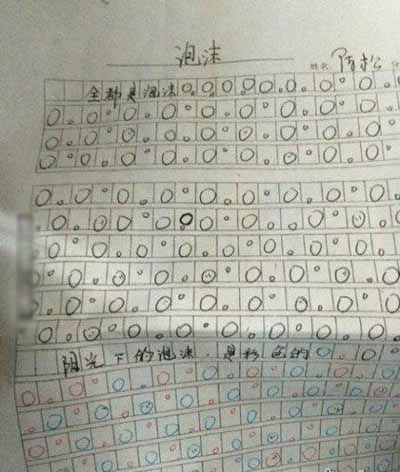 泡沫
姓名 陈松
全都是泡沫
阳光下的泡沫，是彩色的